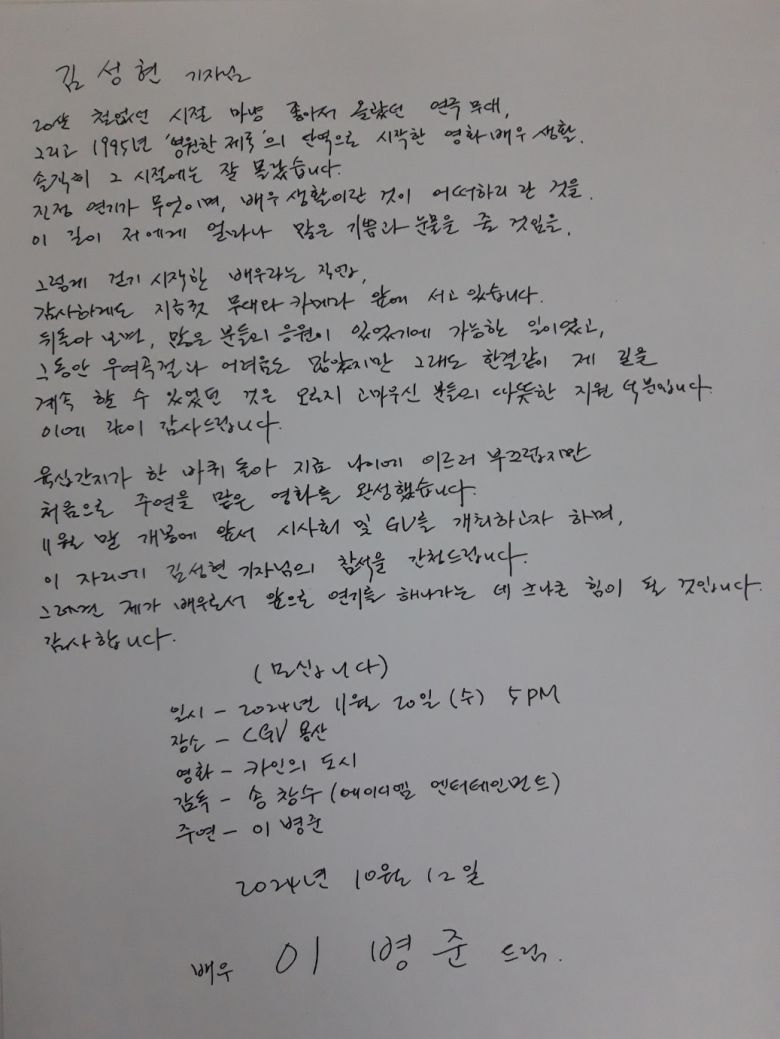 김성현 기자님
20살 철없던 시절 마냥 좋아서 올랐던 연극 무대,
그리고 1995년 '영원한 제국'의 단역으로 시작한 영화배우 생활.
솔직히 그 시절에는 잘 몰랐습니다.
진정 연기가 무엇이며, 배우 생활이란 것이 어떠하리란 것을.
이 길이 저에게 얼마나 많은 기쁨과 눈물을 줄 것임을.
그렇게 걷기 시작한 배우라는 직업,
감사하게도 지금껏 무대와 카메라 앞에 서고 있습니다.
뒤돌아 보면, 많은 분들의 응원이 있었기에 가능한 일이었고,
그동안 우여곡절과 어려움도 많았지만 그래도 한결같이 제 길을
계속 할 수 있었던 것은 오로지 고마우신 분들의 따뜻한 지원 덕분입니다.
이에 깊이 감사드립니다.
육십간지가 한 바퀴 돌아 지금 나이에 이르러 부끄럽지만
처음으로 주연을 맡은 영화를 완성했습니다.
11월 말 개봉에 앞서 시사회 및 GV를 개최하고자 하며,
이 자리에 김성현 기자님의 참석을 간청드립니다.
그래면 제가 배우로서 앞으로 연기를 해나가는 데 크나큰 힘이 될 것입니다.
감사합니다.
(모십니다)
일시 - 2024년 11월 20일 (수) 5PM
장소 - CGV 용산
영화 - 카인의 도시
감독 - 송창수 (에이디엠 엔터테인먼트)
주연 - 이병준
2024년 10월 12일
배우 이병준 드림.